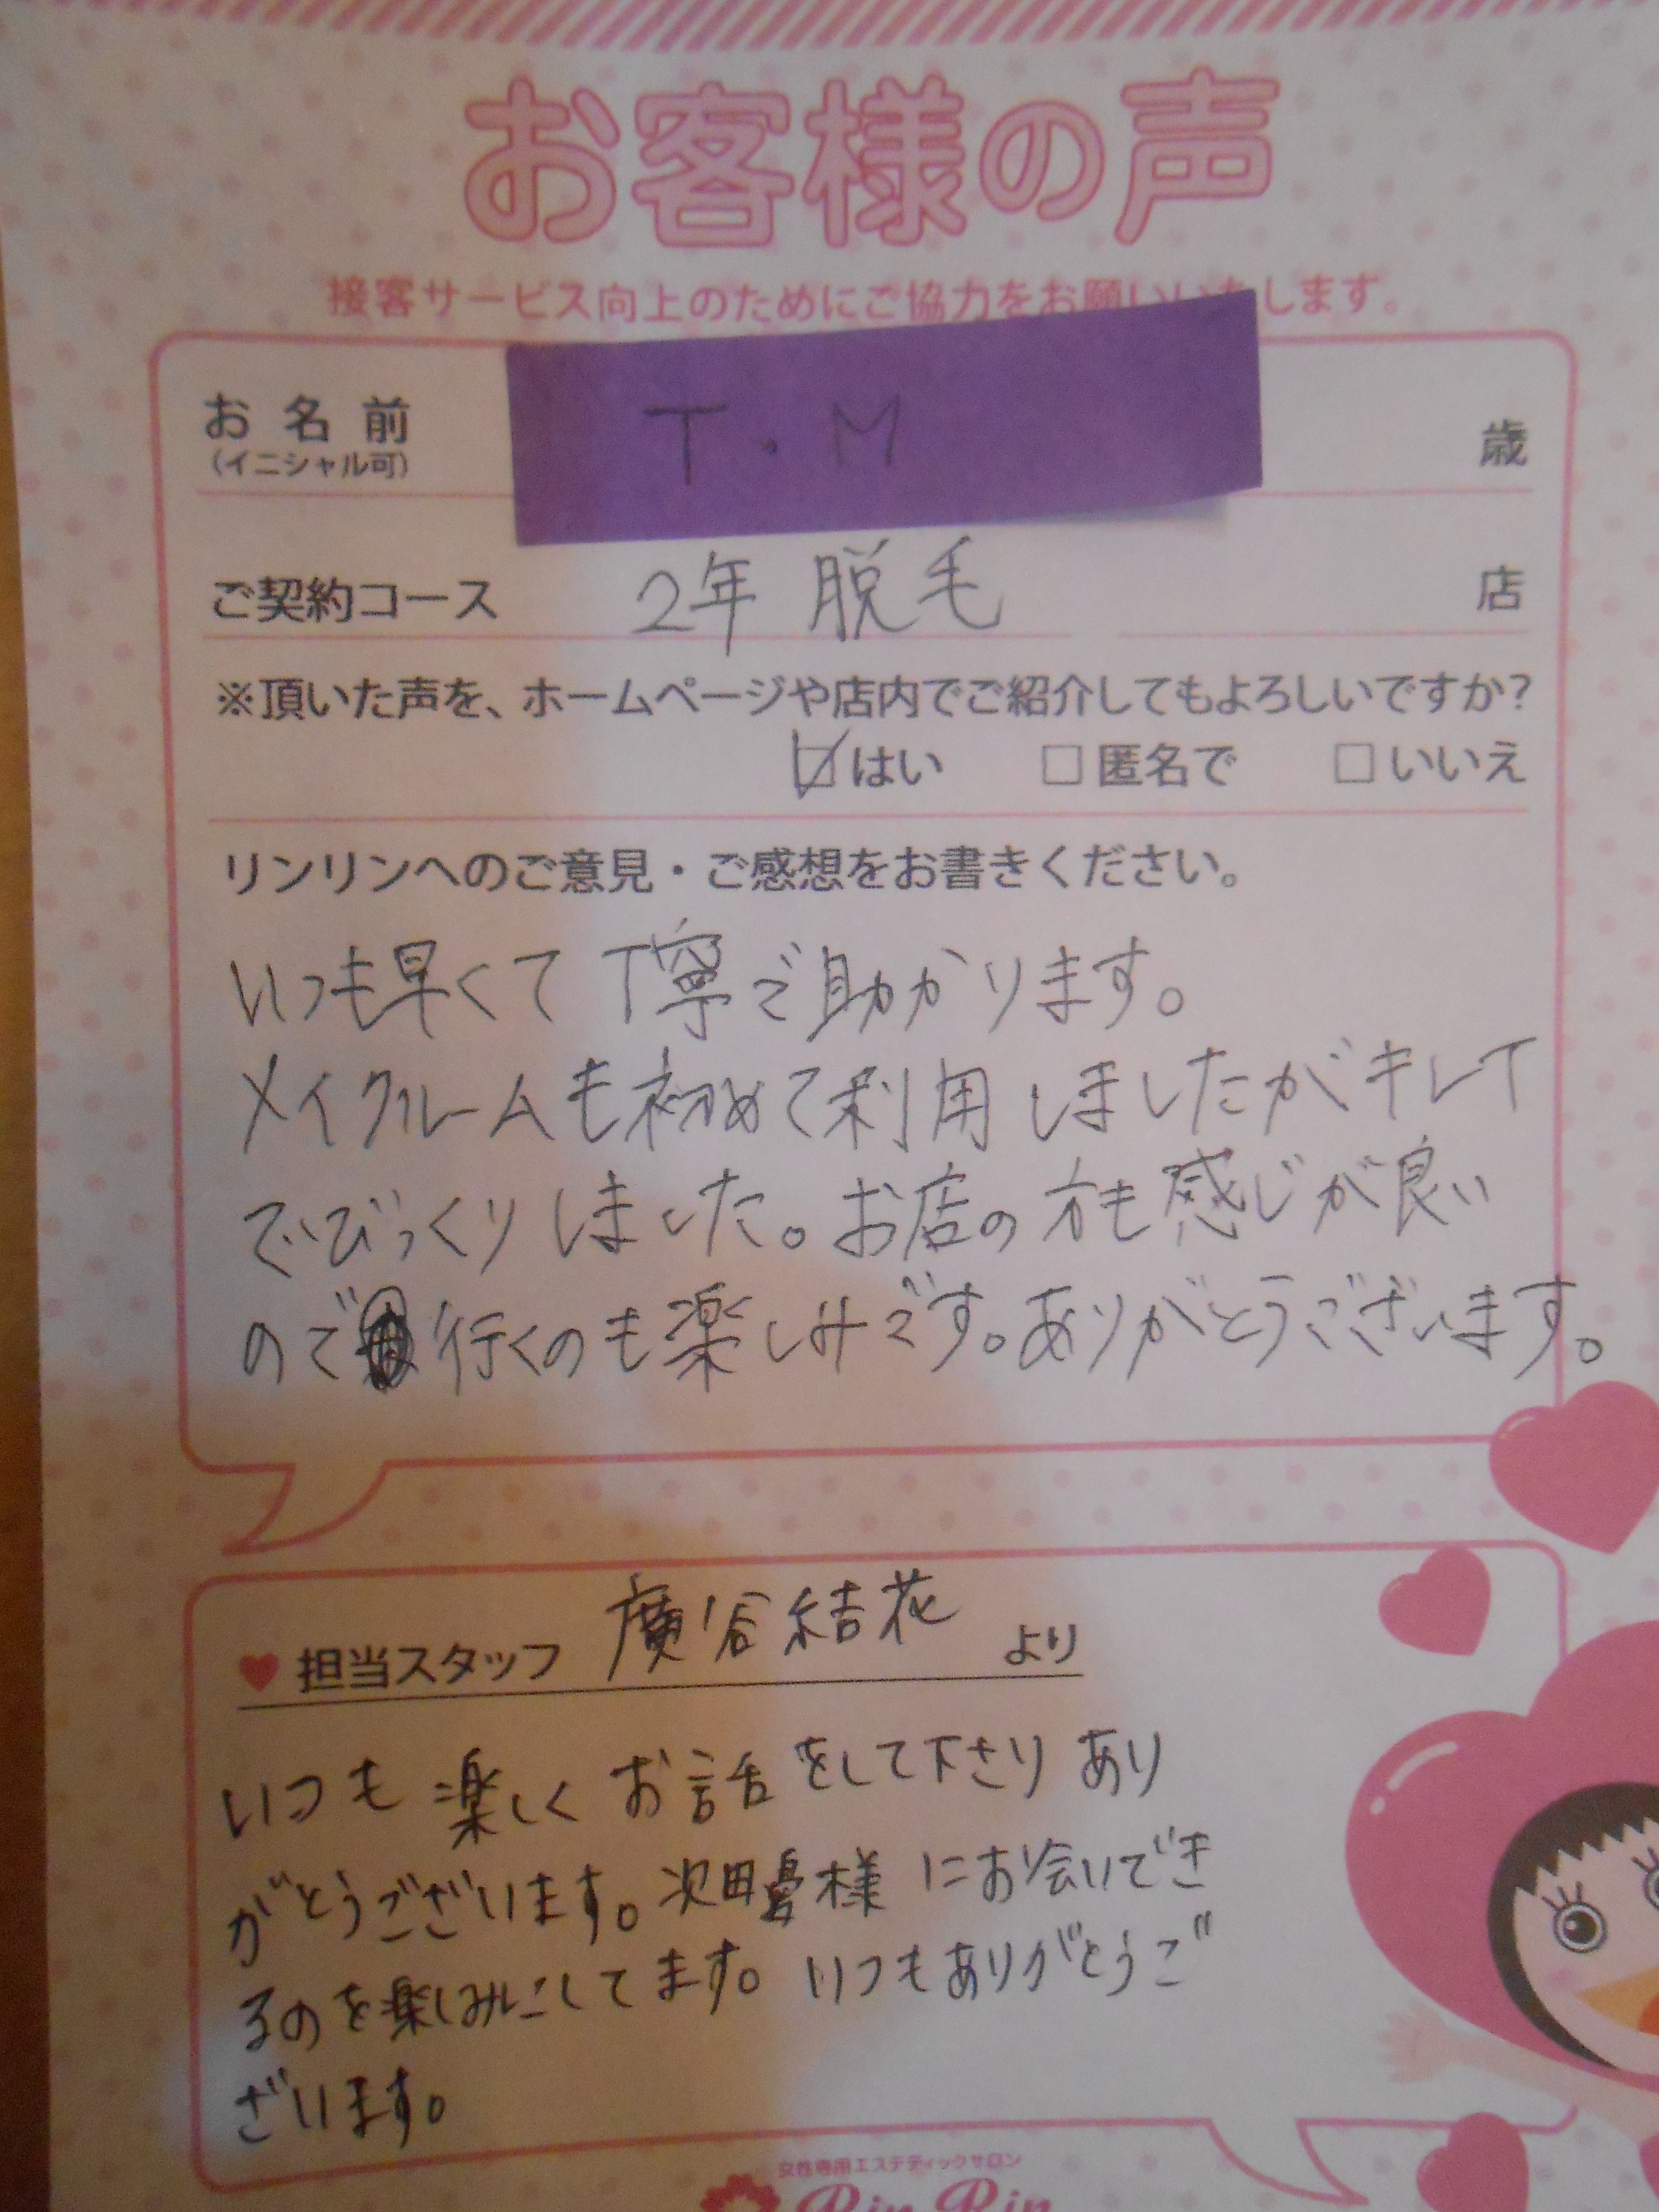 お客様の声
接客サービス向上のためにご協力をお願いいたします。
お名前 T・M 歳
(イニシャル可)
ご契約コース 2年 脱毛 店
※頂いた声を、ホームページや店内でご紹介してもよろしいですか?
☑はい □匿名で □いいえ
リンリンへのご意見・ご感想をお書きください。
いつも早くて丁寧で助かります。
メイクルームも初めて利用しましたがキレイ
でびっくりしました。お店の方も感じが良い
ので行くのも楽しみです。ありがとうございます。
♥担当スタッフ 廣谷結花 より
いつも楽しくお話をして下さりあり
がとうございます。次回 様にお会いでき
るのを楽しみにしてます。いつもありがとうご
ざいます。
女性専用エステティックサロン
Rin Rin